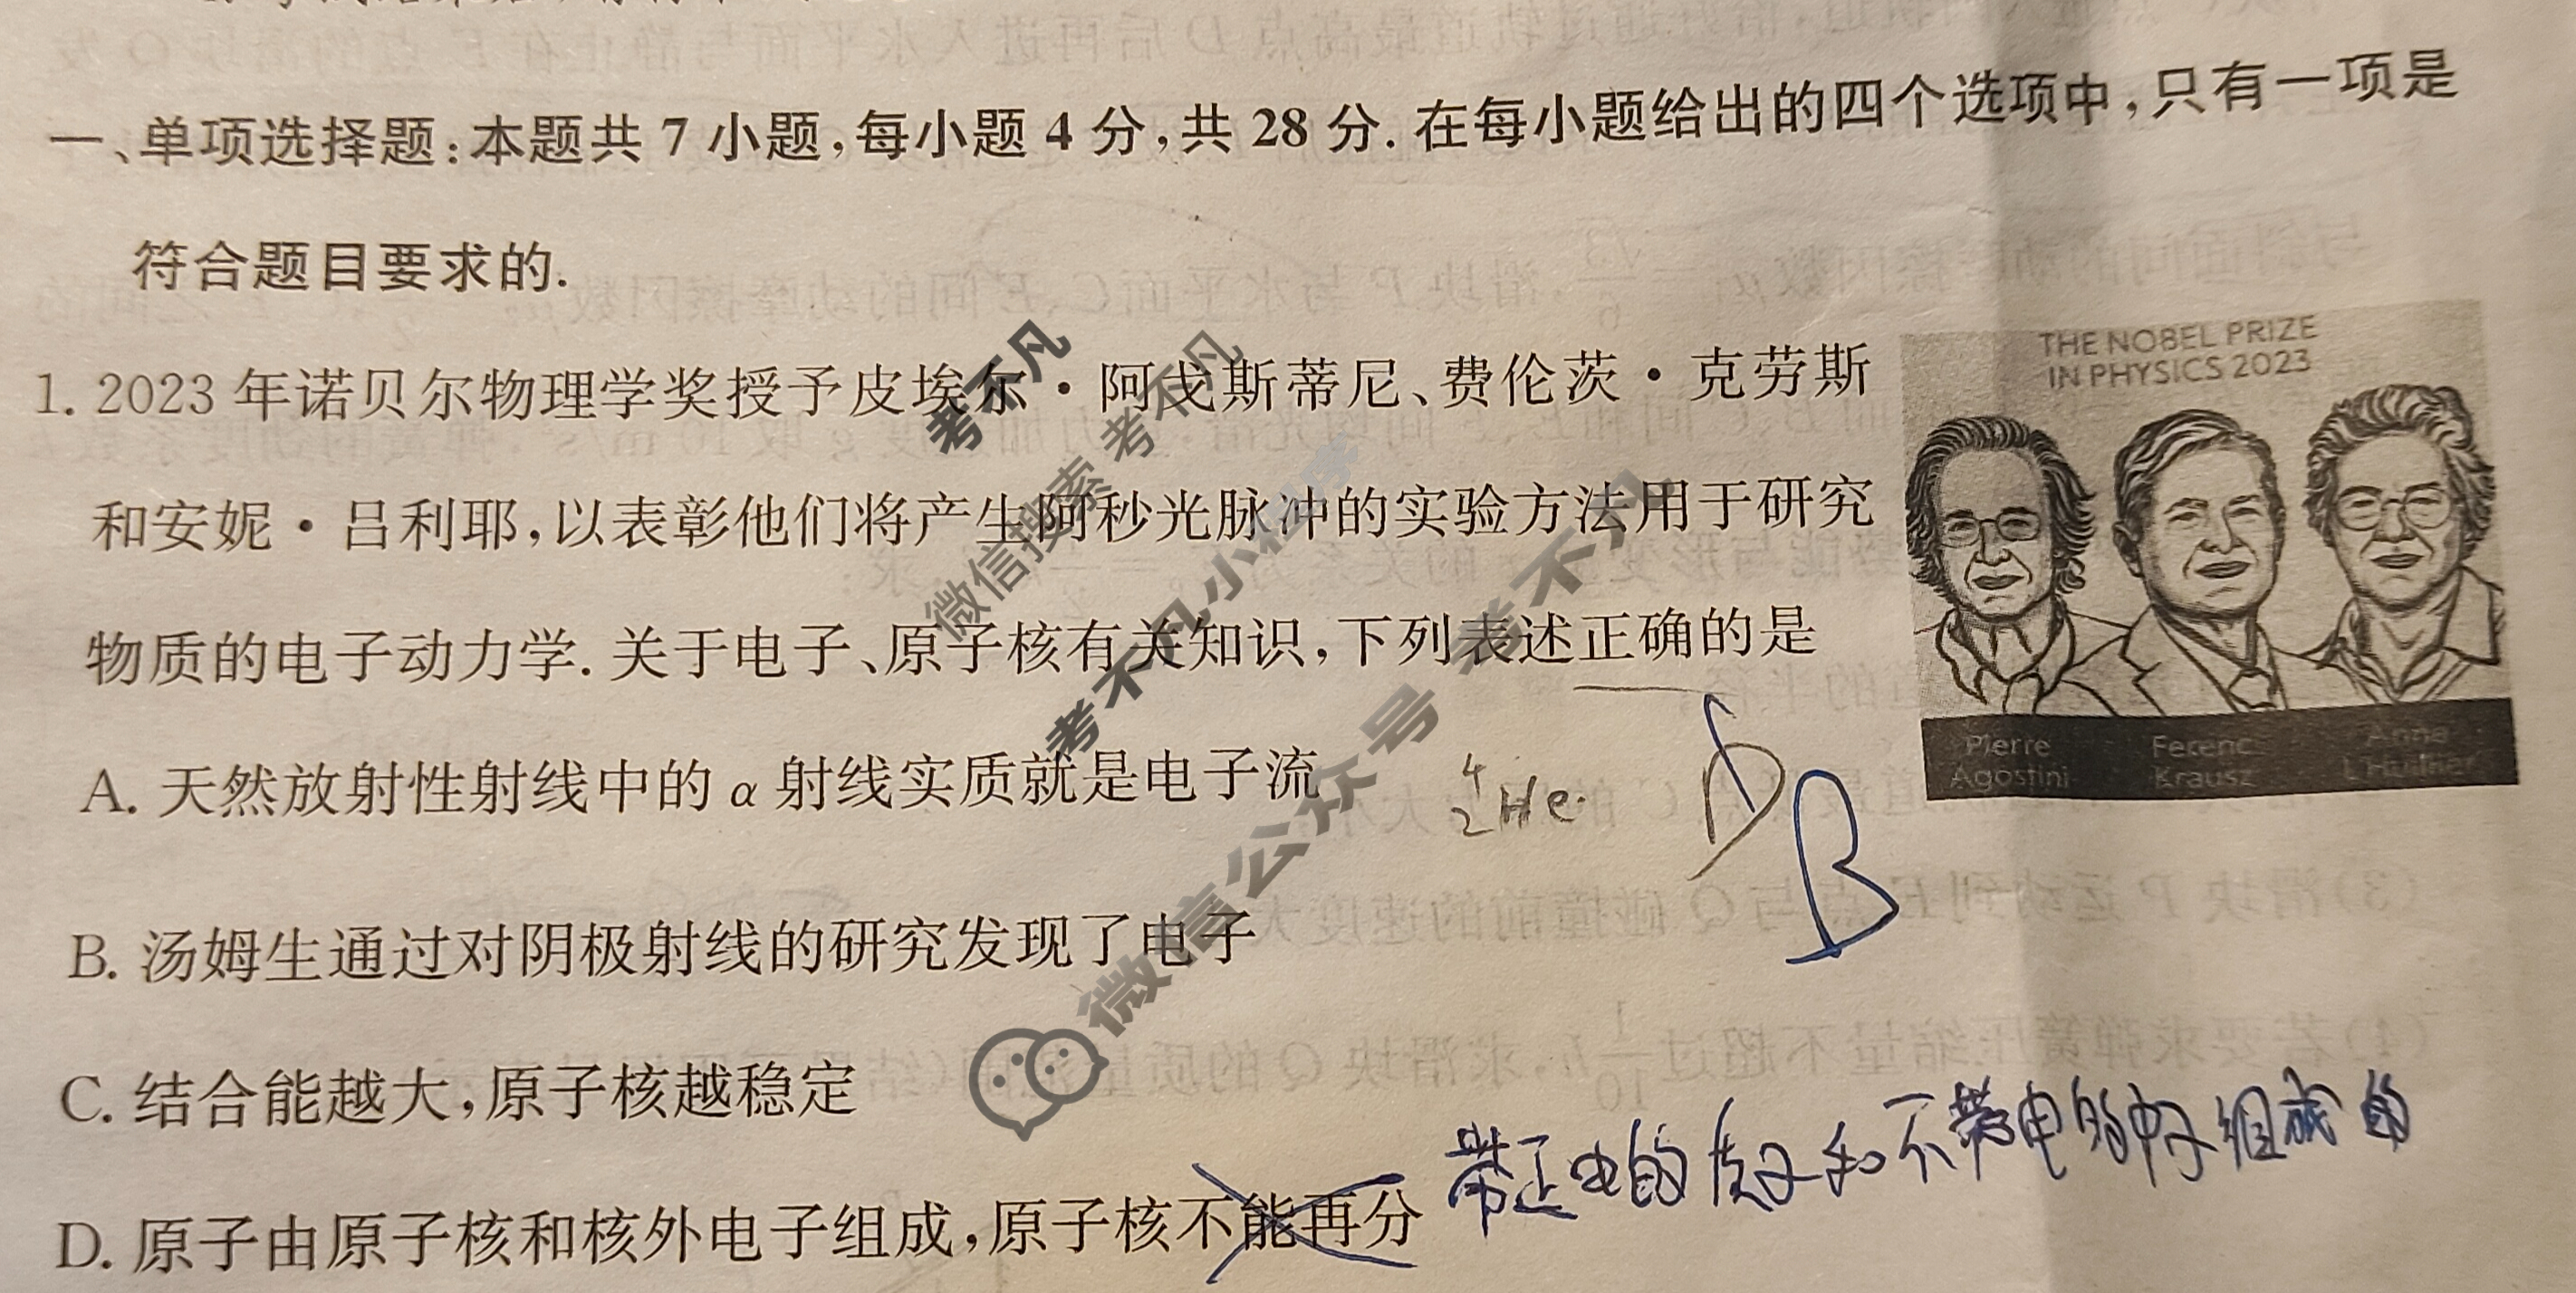 一、单项选择题:本题共 7 小题,每小题 4 分,共 28 分. 在每小题给出的四个选项中,只有一项是
符合题目要求的.
1. 2023 年诺贝尔物理学奖授予皮埃尔·阿戈斯蒂尼、费伦茨·克劳斯
和安妮·吕利耶,以表彰他们将产生阿秒光脉冲的实验方法用于研究
物质的电子动力学. 关于电子、原子核有关知识,下列表述正确的是
THE NOBEL PRIZE
IN PHYSICS 2023
Pierre
Agostini
Ferenc
Krausz
Anne
L'Huillier
A. 天然放射性射线中的 α 射线实质就是电子流
⁴₂He.
D
B
B. 汤姆生通过对阴极射线的研究发现了电子
C. 结合能越大,原子核越稳定
D. 原子由原子核和核外电子组成,原子核不能再分
带正电的质子和不带电的中子组成的
考不凡
微信搜索 考不凡
考不凡小程序
微信公众号 考不凡